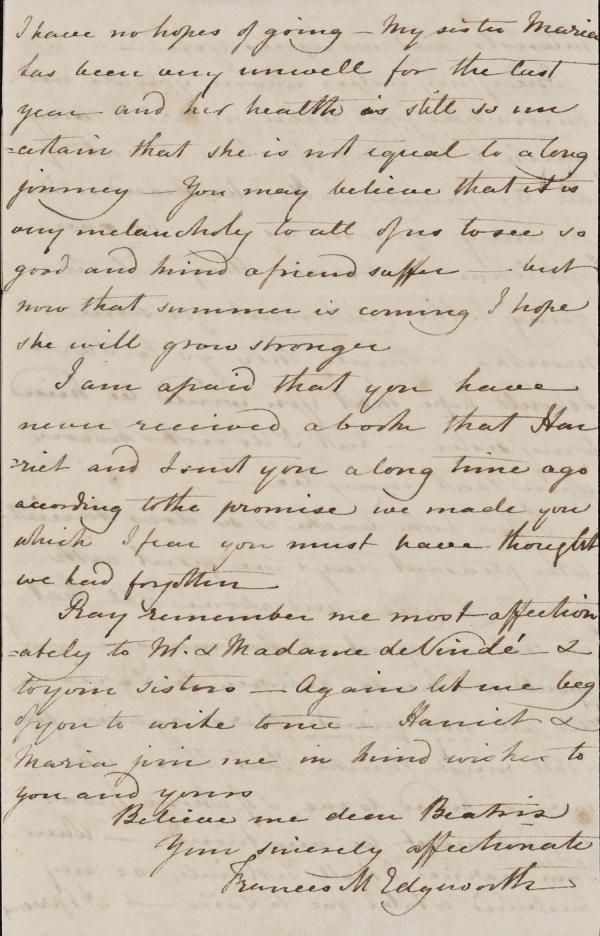 I have no hopes of going – My sister Maria
has been very unwell for the last
year – and her health is still so un
=certain that she is not equal to a long
journey – You may believe that it is
very melancholy to all of us to see so
good and kind a friend suffer – but
now that summer is coming I hope
she will grow stronger
I am afraid that you have
never received a book that Har
=riet and I sent you a long time ago
according to the promise we made you
which I fear you must have thought
we had forgotten
Pray remember me most affection
=ately to M. & Madame de Vindé – &
to your sisters – Again let me beg
of you to write to me – Harriet &
Maria join me in kind wishes to
you and yours
Believe me dear Beatrix
Your sincerely affectionate
Frances M Edgworth